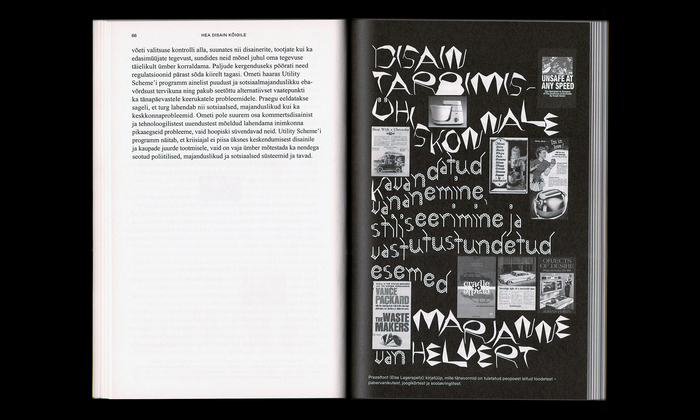 66
HEA DISAIN KÕIGILE
võeti valitsuse kontrolli alla, suunates nii disainerite, tootjate kui ka
edasimüüjate tegevust, sundides neid mõnel juhul oma tegevuse
täielikult ümber korraldama. Paljude kergenduseks pöörati need
regulatsioonid pärast sõda kiirelt tagasi. Ometi haaras Utility
Scheme'i programm ainelist puudust ja sotsiaalmajanduslikku eba-
võrdsust tervikuna ning pakub seetõttu alternatiivset vaatepunkti
ka tänapäevastele keerukatele probleemidele. Praegu eeldatakse
sageli, et turg lahendab nii sotsiaalsed, majanduslikud kui ka
keskkonnaprobleemid. Ometi pole suurem osa kommertsdisainist
ja tehnoloogilistest uuendustest mõeldud lahendama inimkonna
pikaaegseid probleeme, vaid hoopiski süvendavad neid. Utility Scheme'i
programm näitab, et kriisiajal ei piisa üksnes keskendumisest disainile
ja kaupade juurde tootmisele, vaid on vaja ümber mõtestada ka nendega
seotud poliitilised, majanduslikud ja sotsiaalsed süsteemid ja tavad.
DISAIN
TARBIMIS-
ÜHISKONNALE
Kavandatud
vananemine,
stiliseerimine ja
vastutustundetud
esemed
MARJANNE
van HELVERT
UNSAFE AT
ANY SPEED
cradle
to
cradle
OBJECTS
OF DESIRE
VANCE
PACKARD
THE WASTE
MAKERS
Pressifont (Else Lagerspetz): kirjatüüp, mille tähevormid on tuletatud peopesst leitud toodetest –
pabervanikutest, joogikõrtest ja soolavinglitest.